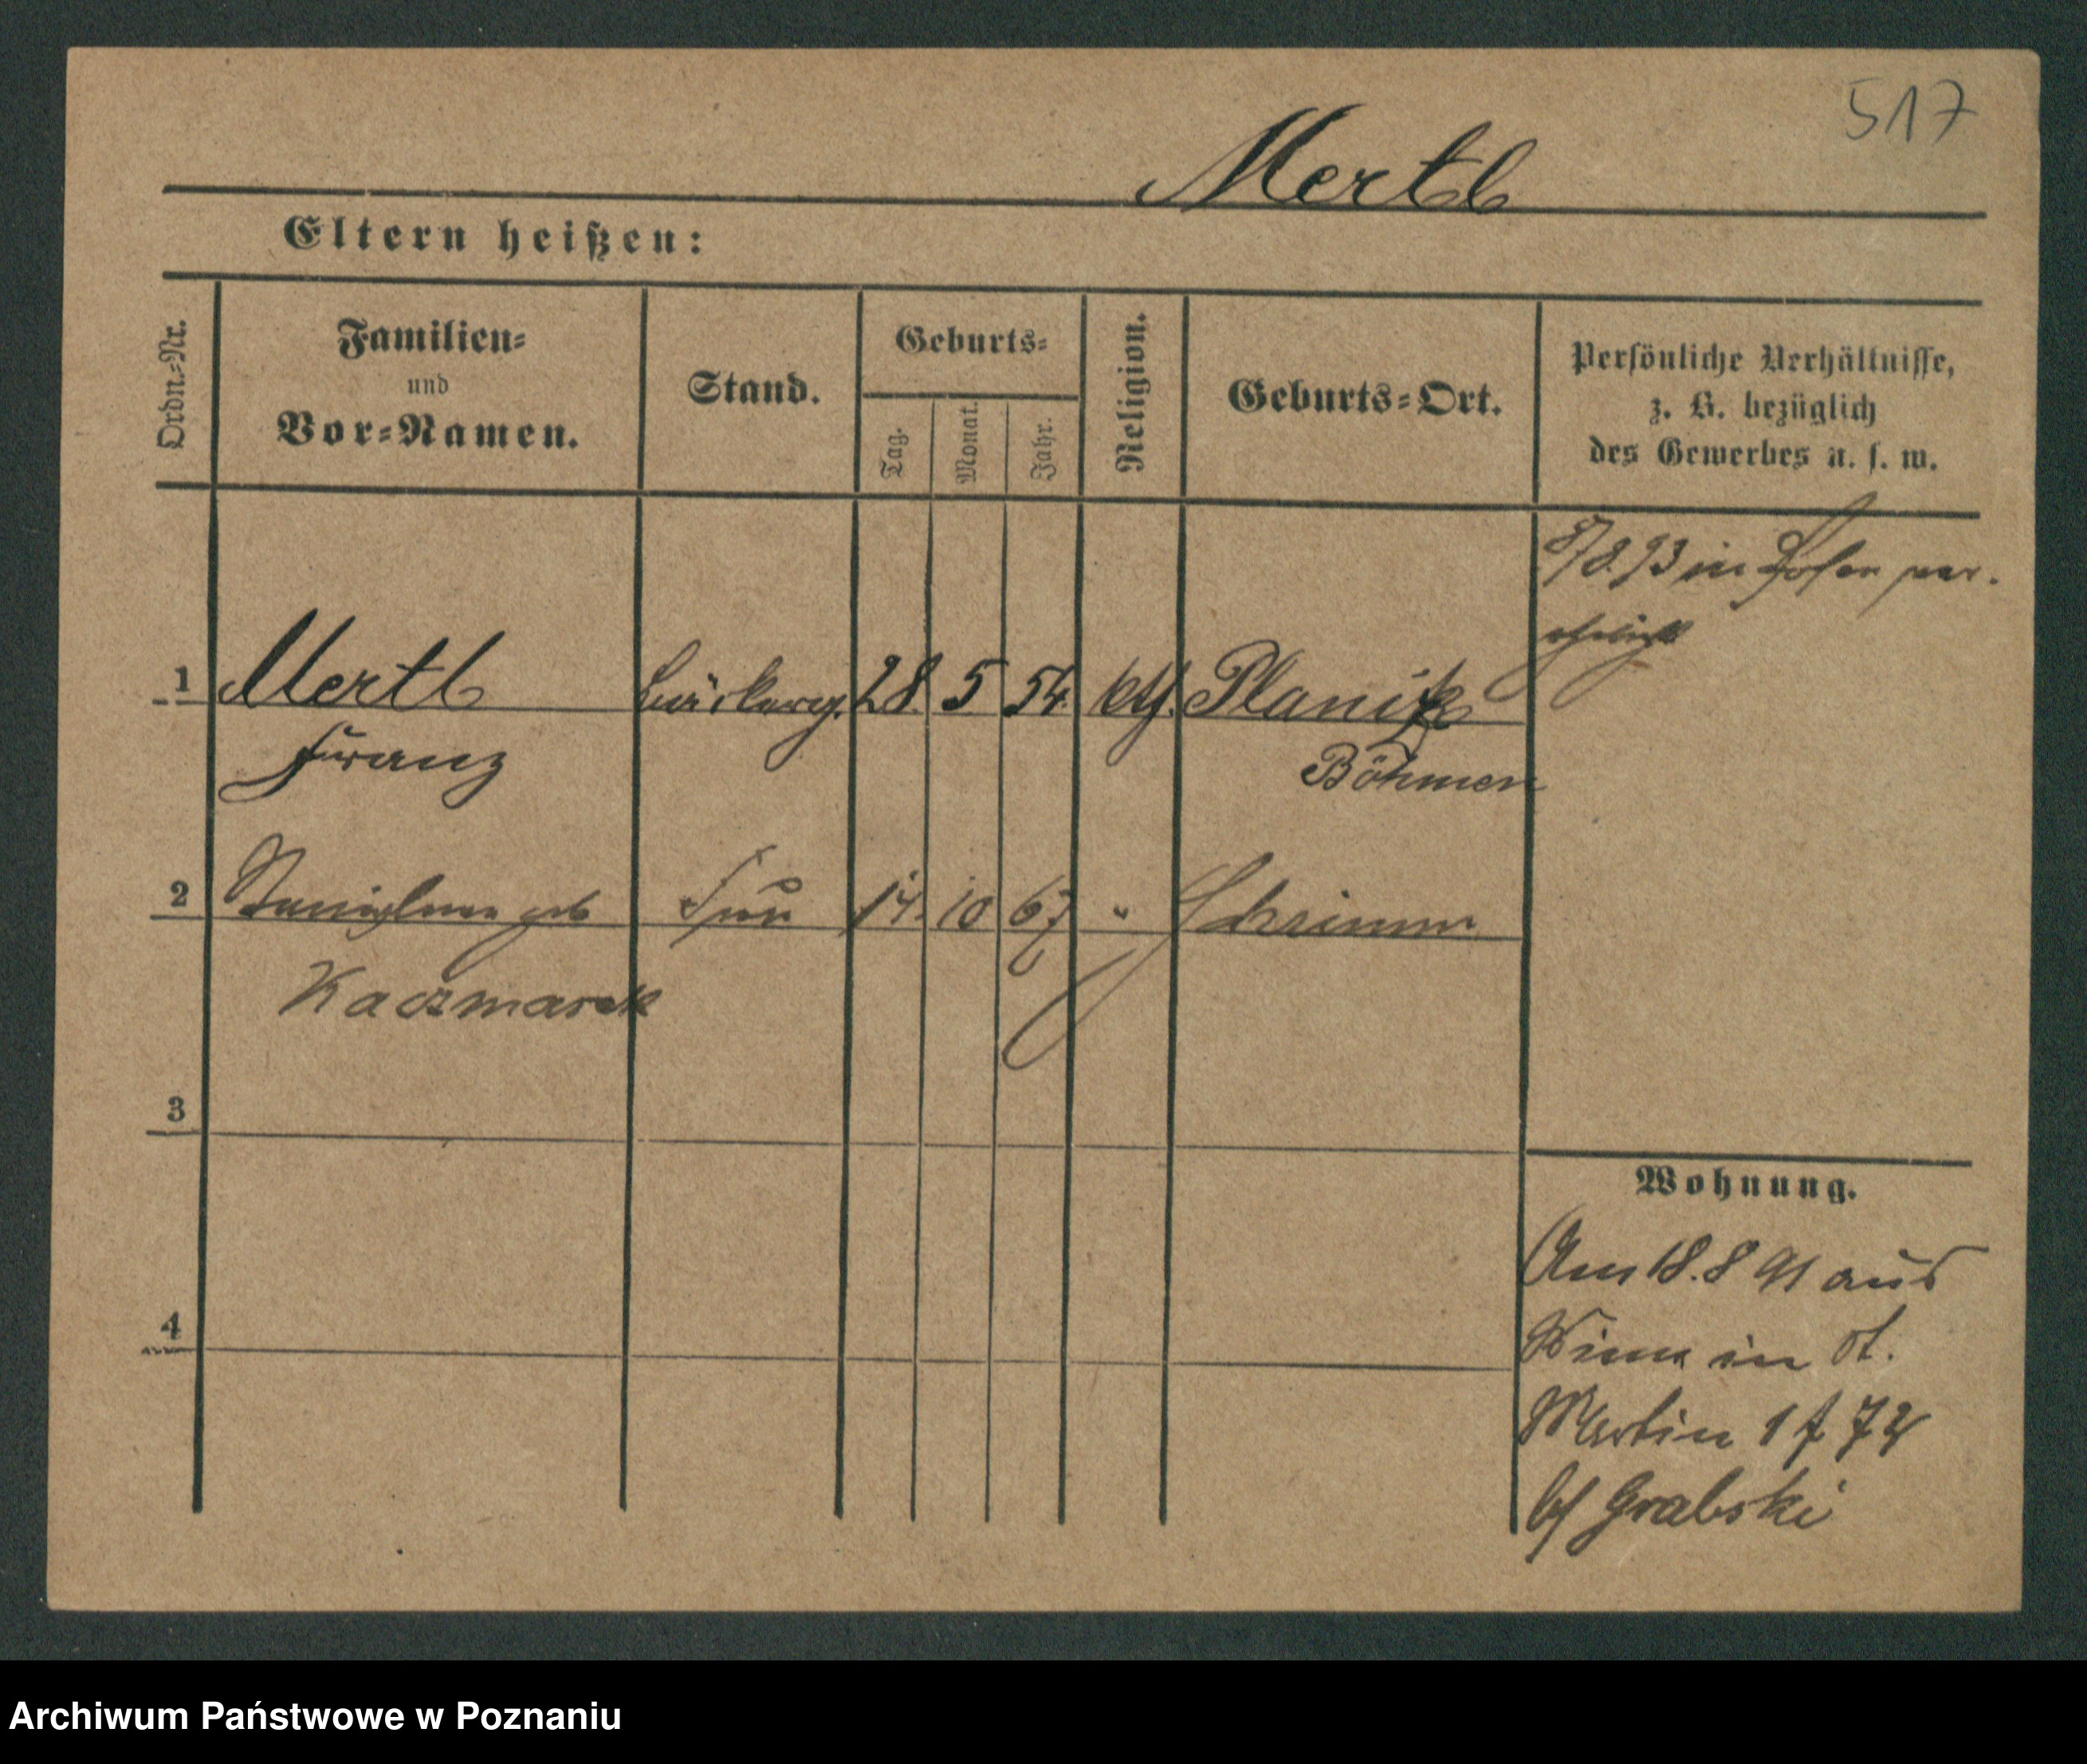 517
Mertl
Eltern heißen:
Ordn.-Nr.
Familien-
und
Vor-Namen.
Stand.
Geburts-
Tag.
Monat.
Jahr.
Religion.
Geburts-Ort.
Persönliche Verhältnisse,
z. B. bezüglich
des Gewerbes u. s. w.
8/8.93 in Posen ver-
ehelicht
1 Mertl 28. 5 54. kth. Planitz
Franz
Böhmen
2 geb Frau 14. 10 67 " Schrimm
Kaczmarek
3
4
Wohnung.
Am 18. 8 91 aus
in St.
Martin 1
b/ Grabski
Archiwum Państwowe w Poznaniu